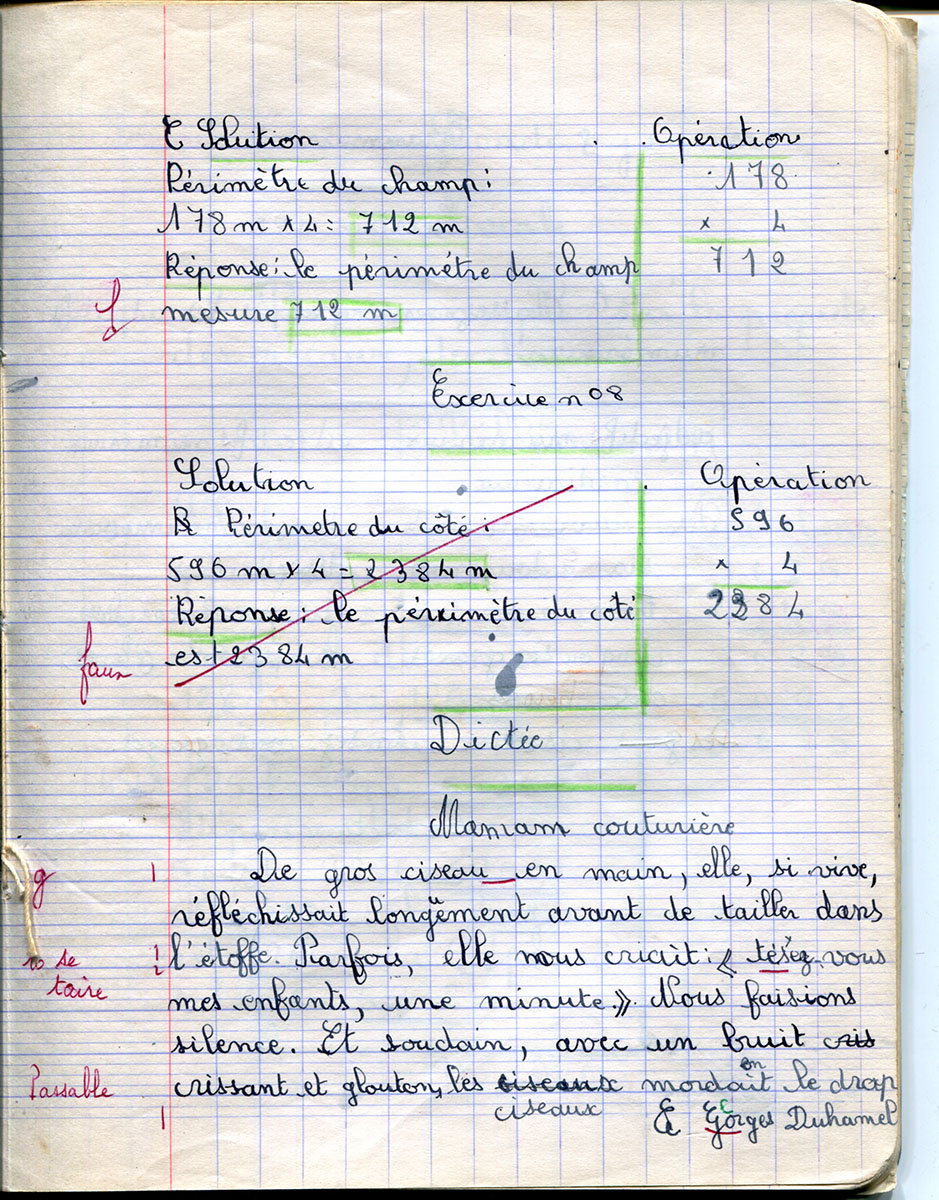 Solution Opération
Périmètre du champ : 178
178 m × 4 = 712 m × 4
Réponse : le périmétre du champ 712
mesure 712 m
Exercice n° 8
Solution Opération
Périmetre du côté : 596
596 m × 4 = 2384 m × 4
Réponse : le périmètre du côté 2384
faux est 2384 m
Dictée
Maman couturière
g 1 De gros ciseau en main, elle, si vive,
réfléchissait longuement avant de tailler dans
l'étoffe. Parfois, elle nous criait : « tésez-vous
vo se taire
mes enfants, une minute ». Nous faisions
silence. Et soudain, avec un bruit cris
Passable crissant et glouton, les ciseaux mordaiton le drap
1 ciseaux Gorges Duhamel